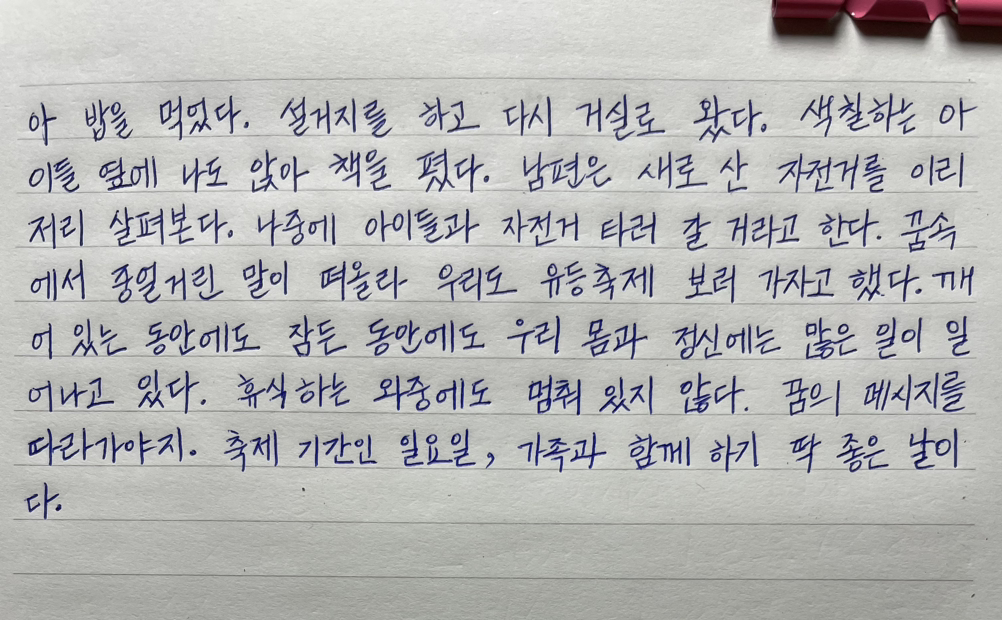 아 밥을 먹었다. 설거지를 하고 다시 거실로 왔다. 색칠하는 아
이들 옆에 나도 앉아 책을 폈다. 남편은 새로 산 자전거를 이리
저리 살펴본다. 나중에 아이들과 자전거 타러 갈 거라고 한다. 꿈속
에서 중얼거린 말이 떠올라 우리도 유등축제 보러 가자고 했다. 깨
어 있는 동안에도 잠든 동안에도 우리 몸과 정신에는 많은 일이 일
어나고 있다. 휴식하는 와중에도 멈춰 있지 않다. 꿈의 메시지를
따라가야지. 축제 기간인 일요일, 가족과 함께 하기 딱 좋은 날이
다.